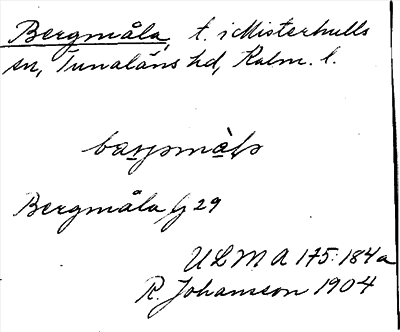 Bergmåla, t. i Misterhults
sn, Tunaläns hd, Kalm. l.
Bergmåla G 29
ULMA 175:184a
R. Johansson 1904